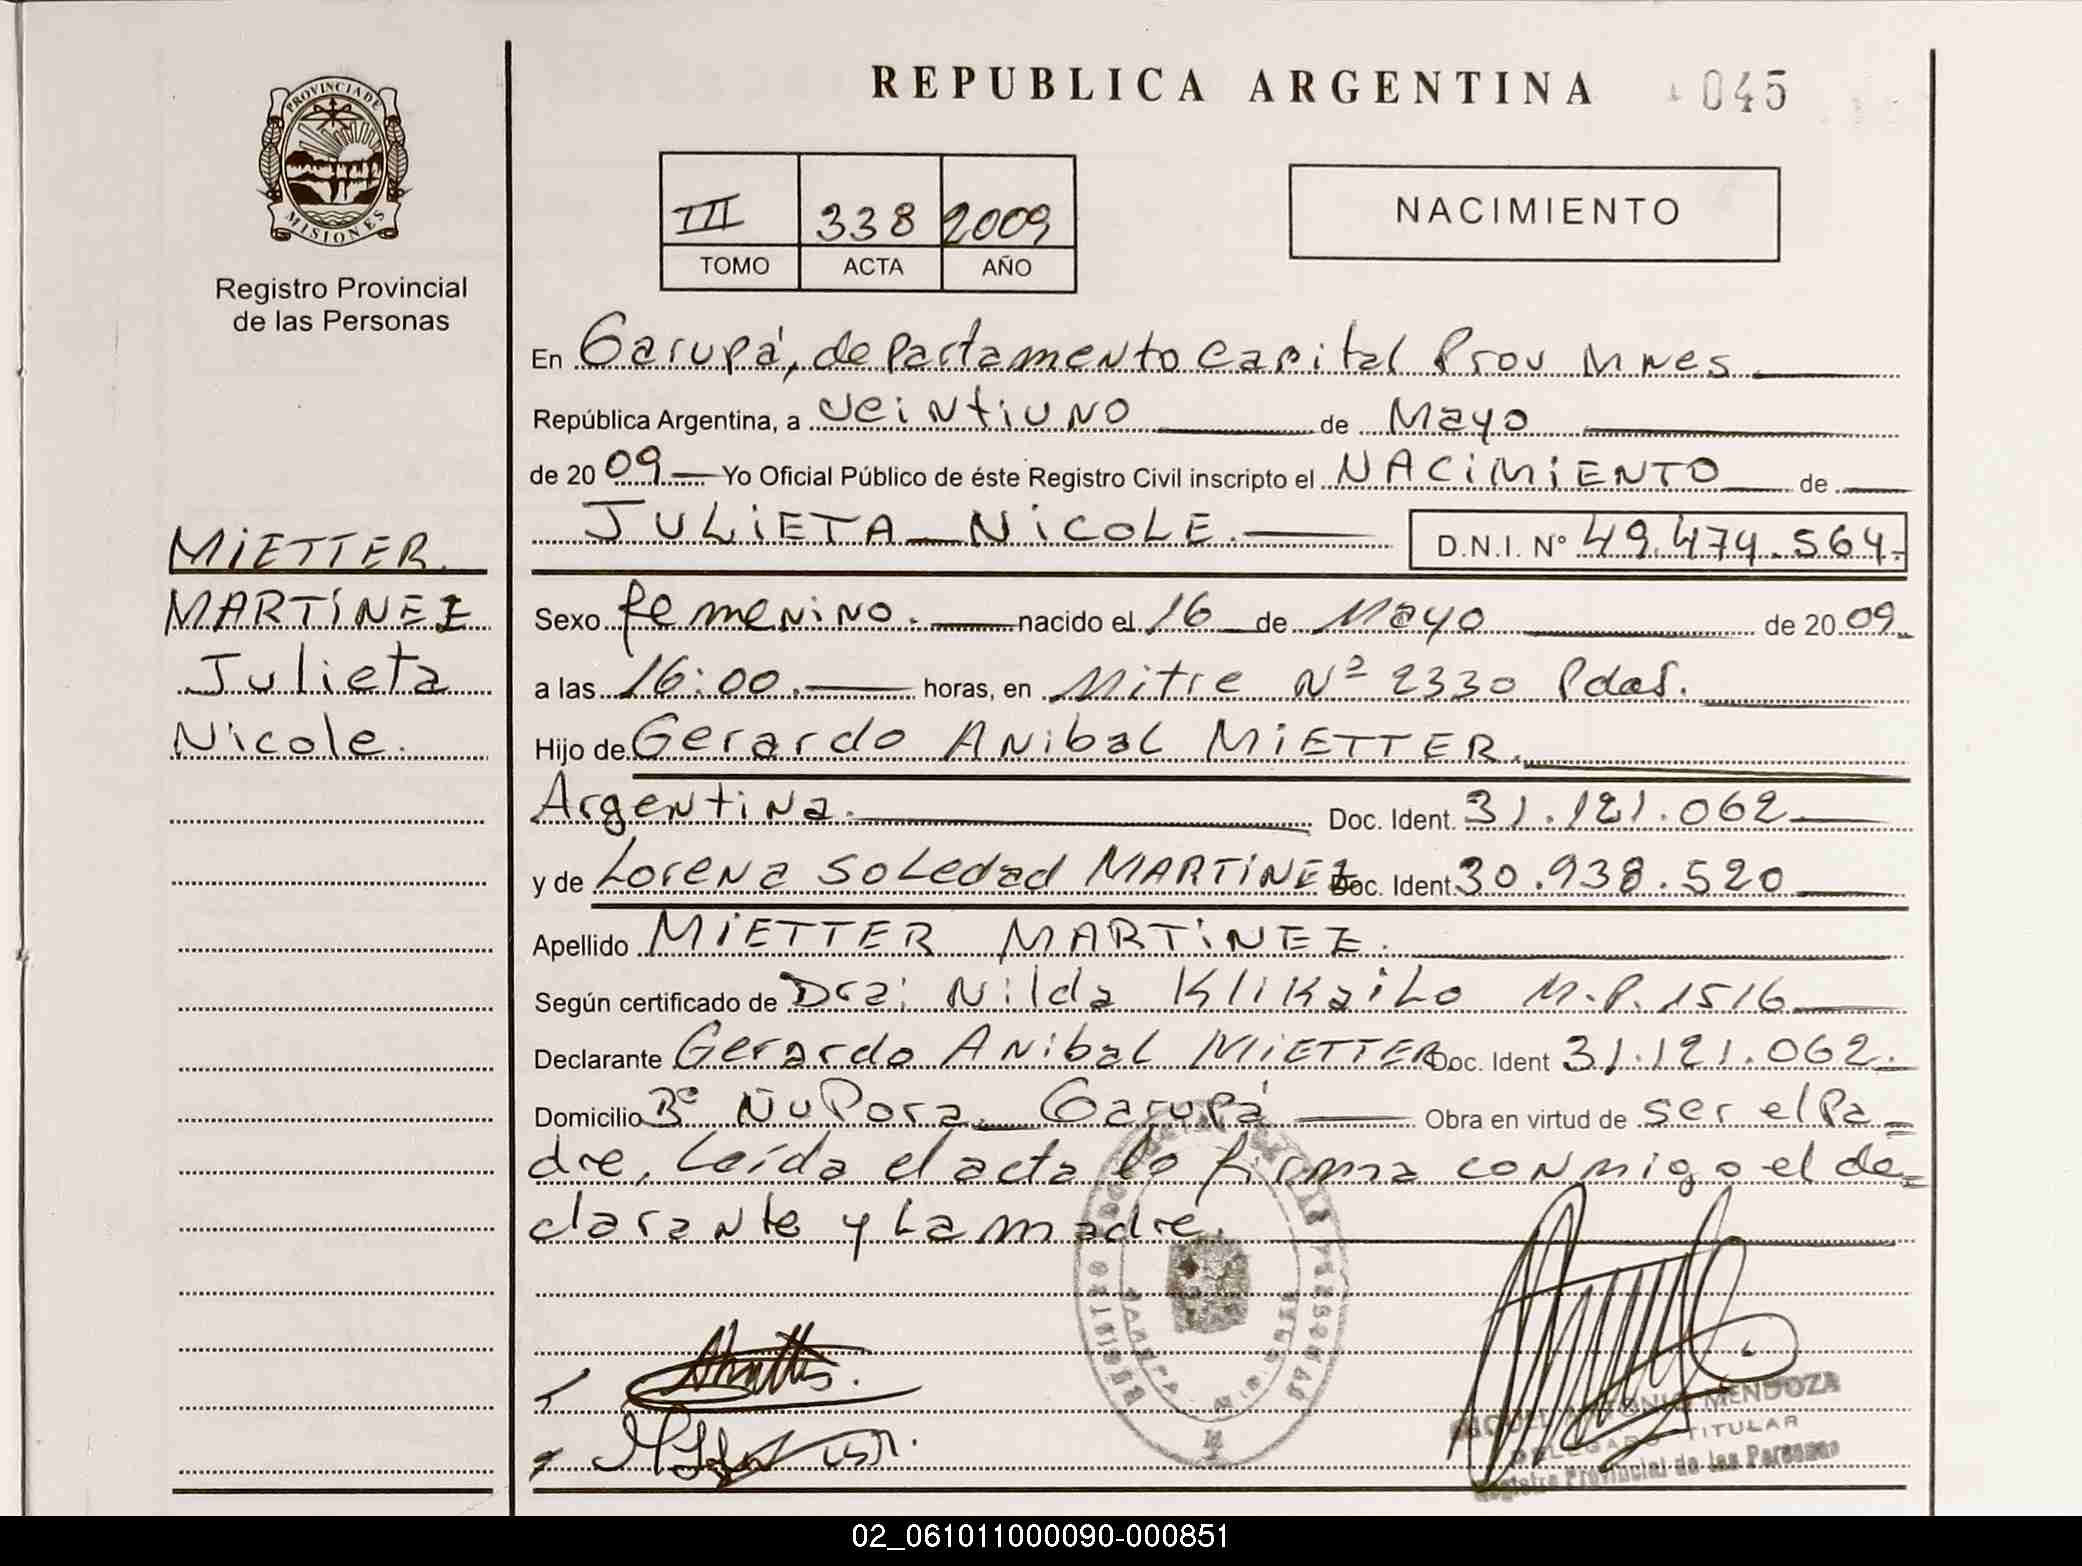 REPUBLICA ARGENTINA 045
PROVINCIA DE
MISIONES
Registro Provincial
de las Personas
III 338 2009
TOMO ACTA AÑO
NACIMIENTO
En Garupá, departamento Capital Prov Mnes
República Argentina, a veintiuno de Mayo
de 2009 Yo Oficial Público de éste Registro Civil inscripto el NACIMIENTO de
JULIETA NICOLE. D.N.I. Nº 49.474.564.
MIETTER
MARTÍNEZ
Julieta
Nicole.
Sexo femenino. nacido el 16 de Mayo de 2009
a las 16:00 horas, en Mitre Nº 2330 Pdas.
Hijo de Gerardo Anibal MIETTER.
Argentina. Doc. Ident. 31.121.062
y de Lorena Soledad MARTINEZ Doc. Ident. 30.938.520
Apellido MIETTER MARTINEZ.
Según certificado de Dra: Nilda Klikailo M.P. 1516
Declarante Gerardo Anibal MIETTER Doc. Ident 31.121.062.
Domicilio Bº Ñu Pora Garupá Obra en virtud de ser el Pa=
dre, Leída el acta la firma conmigo el de=
clarante y La madre.
MIGUEL ANTONIO MENDOZA
DELEGADO TITULAR
Registro Provincial de las Personas
02_061011000090-000851